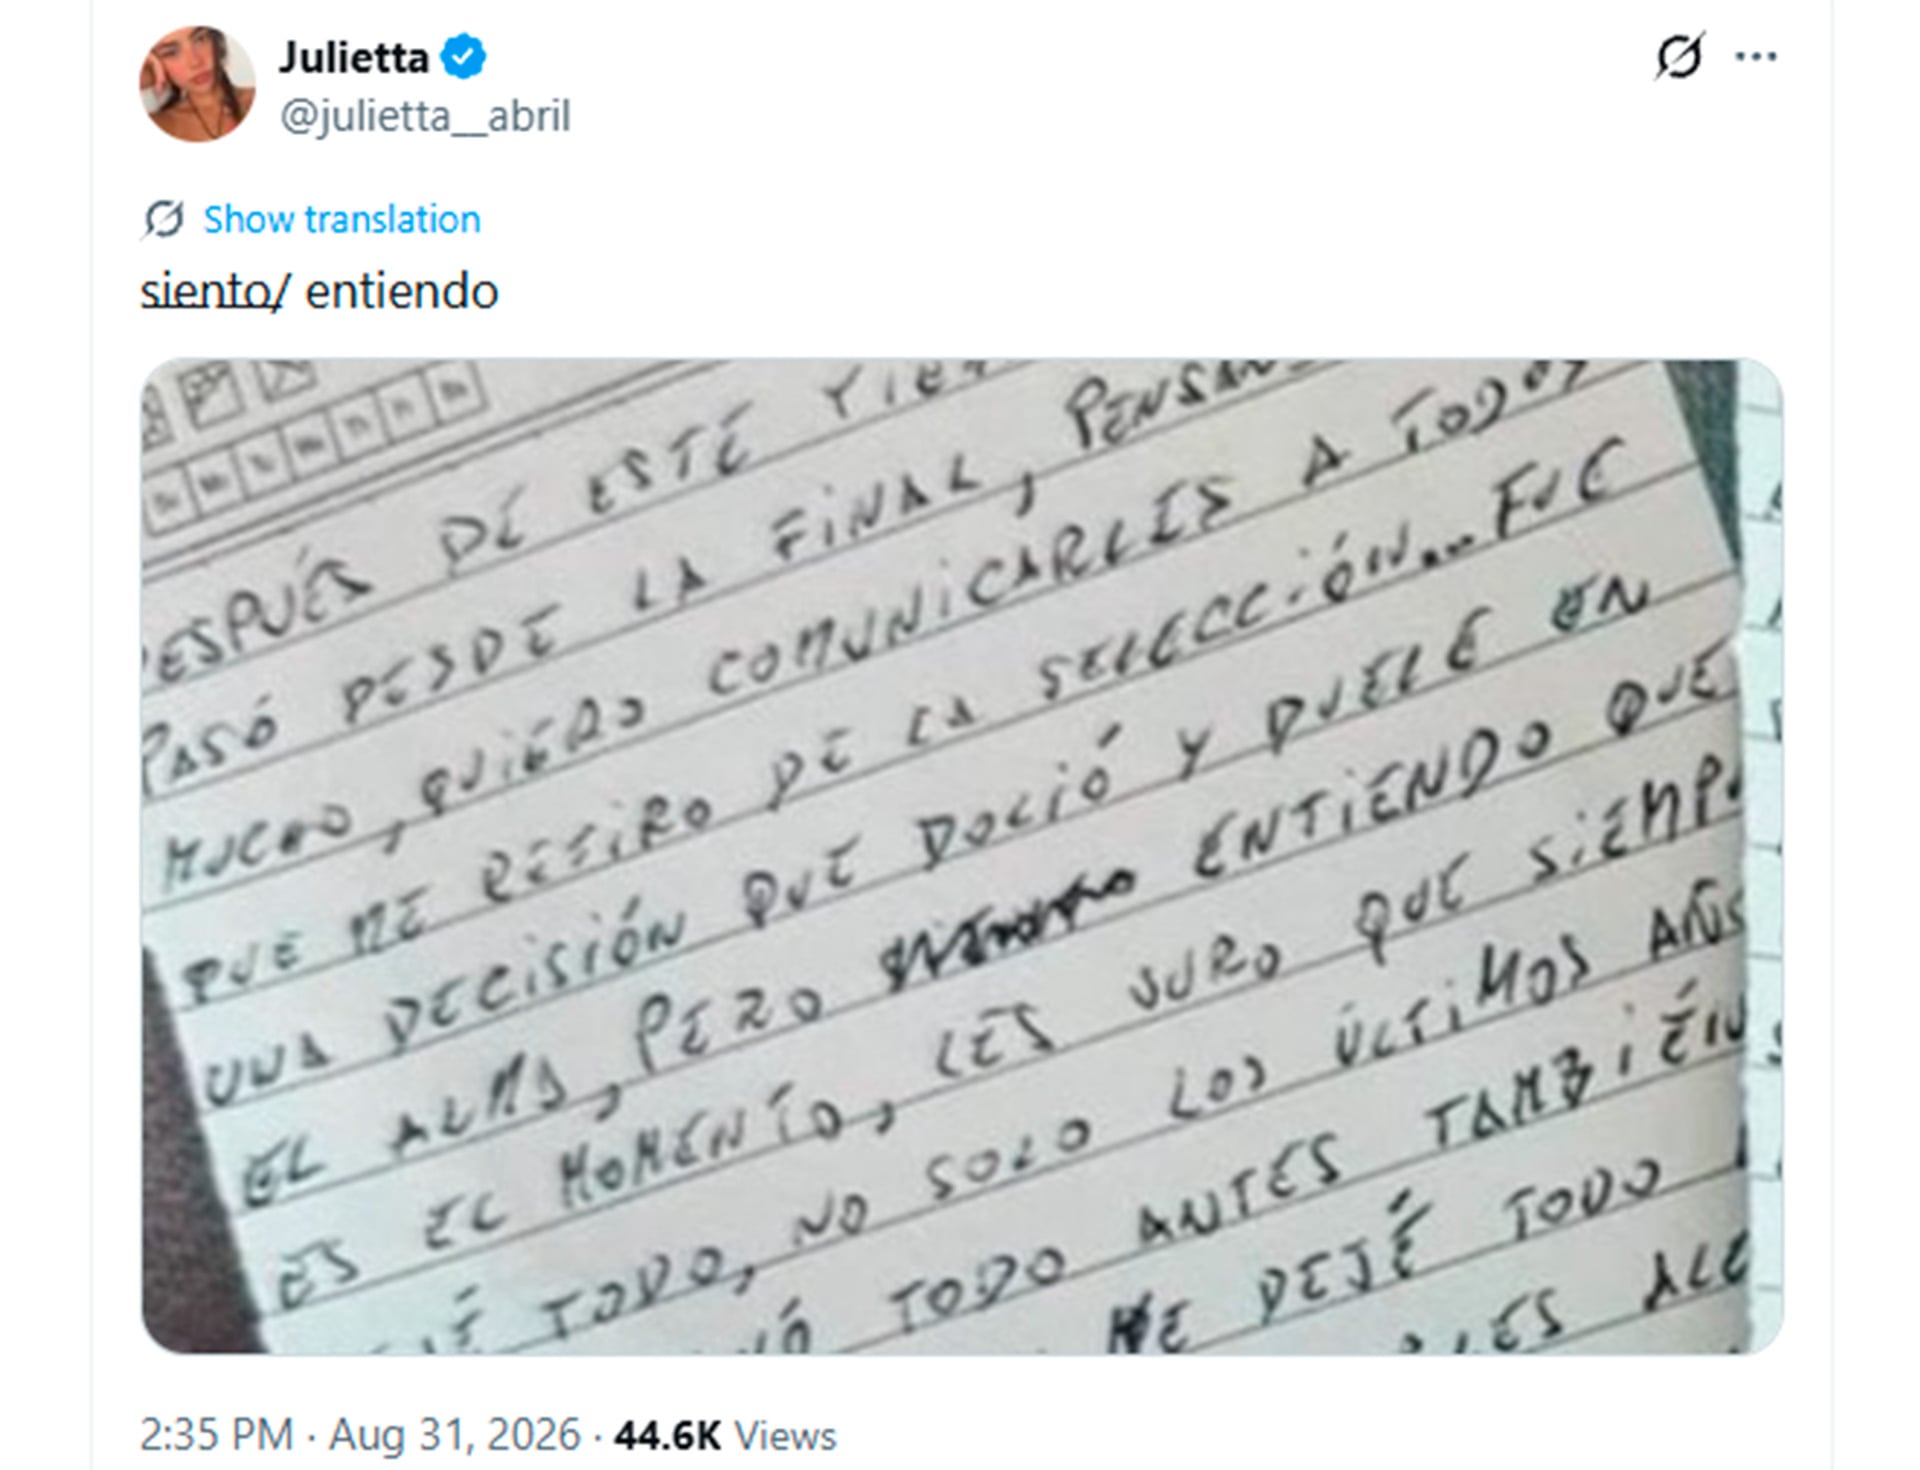 Julietta
@julietta__abril
Show translation
siento/ entiendo
ESPUÉS DE ESTE
PASÓ DESDE LA FINAL, PENSAN
MUCHO, QUIERO COMUNICARLES A TODOS
QUE ME RETIRO DE LA SELECCIÓN... FUE
UNA DECISIÓN QUE DOLIÓ Y DUELE EN
EL ALMA, PERO ENTIENDO QUE
ES EL MOMENTO, LES JURO QUE SIEMPR
TODO, NO SOLO LOS ÚLTIMOS AÑOS
TODO ANTES TAMBIÉN
ME DEJÉ TODO
2:35 PM · Aug 31, 2026 · 44.6K Views